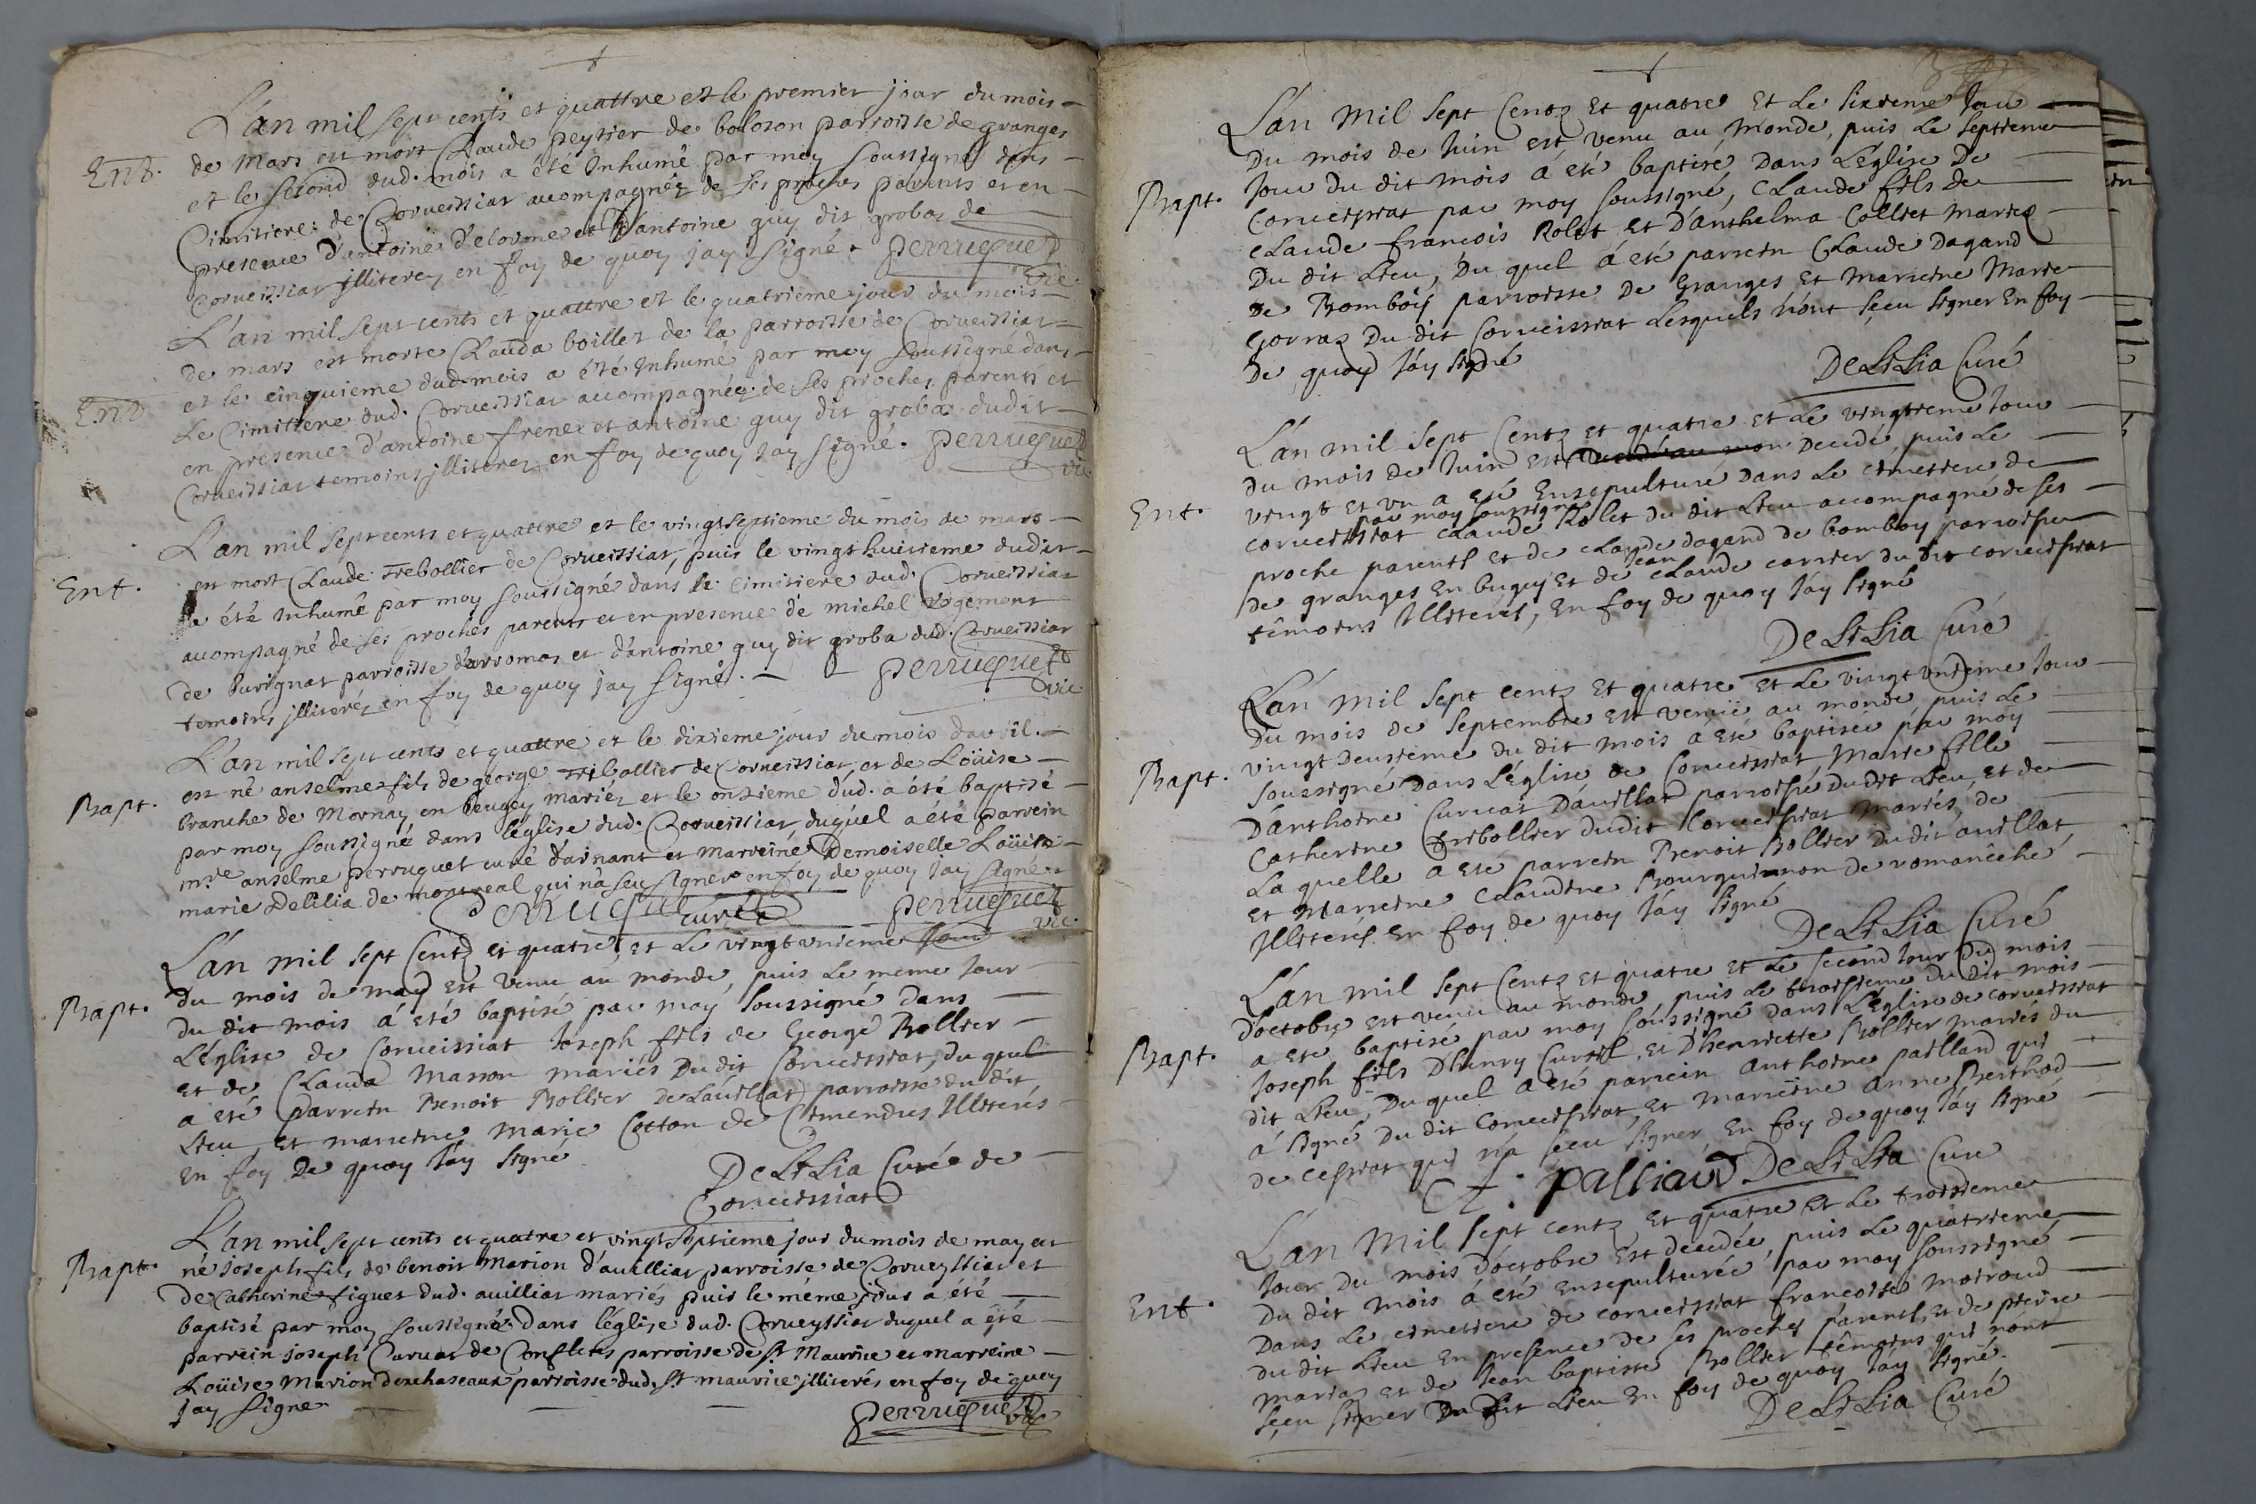 L'an mil sept cents et quattre et le premier jour du mois
Ent. de Mars est mort Claude peytier de boloson parroisse de granges
et le second dud. mois a été Inhumé par moy soussigné dans
Cimitiere de Corveissiat accompagnéz de ses proches parents et en
presence d'antoine delorme et d'antoine guy dit grobaz de
Corveissiat jlliterez en foy de quoy jay signé. perruquet
vic
L'an mil sept cents et quattre et le quatrieme jour du mois
de mars est morte Clauda boillet de la parroisse de Corveissiat
et le cinquieme dud mois a été Inhumé par moy soussigné dans
Ent Le Cimittere dud. Corveissiat accompagnée de ses proches parents et
en presence d'antoine frene et antoine guy dit groba dudit
Corveissiat temoins jlliterez en foy de quoy Jay signé. perruquet
vic
L'an mil sept cents et quattre et le vingtseptieme du mois de mars
Ent. est mort Claude Trebollier de Corveissiat, puis le vingt huitieme dudit
a été Inhumé par moy soussigné dans le cimitiere dud. Corveissiat
accompagné de ses proches parents et en presence de michel
de Turignat parroisse d'arromas et d'antoine guy dit groba dud. Corveissiat
temoins jlliteréz en foy de quoy jay signé. perruquet
vic
L'an mil sept cents et quattre et le dixieme jour du mois d'avril.
Bapt. est né anselme fils de george Trebollier de Corveissiat et de Loüise
branche de Mornay en beugey mariéz et le onzieme dud. a été baptisé
par moy soussigné dans l'église dud. Corveissiat duquel a été parrein
mre anselme perruquet curé d'arnant et marreiné Demoiselle Loüise
marie Delilia de montreal qui n'a seu signer en foy de quoy jay signé
Perruquet curé perruquet
vic
L'an mil sept Centz et quatre, et Le vingtunieme Jour
Bapt. Du mois de may est venu au monde, puis Le meme Jour
Du dit mois á eté baptisé par moy soussigné dans
L'église de Corveissiat Joseph fils de George Bollier
et de Clauda Masson mariés Du dit Corveissiat, du quel
a eté Parrein Benoit Bollier de Lávillat parroisse du dit
Lieu, et marreine Marie Cotton de Cimendres Illiterés
en foy de quoy Jáy signé
De LiLia Curé de
Corveissiat
L'an mil sept cents et quatre et vingt septieme jour du mois de may est
Bapt. né Joseph fils de benoit Marion d'avilliat parroisse de Corveyssiat et
de Catherine figuet dud. avilliat mariés puis le méme jour a été
baptisé par moy soussigné dans l'église dud. Corveyssiat duquel a été
parrein joseph Curvat de Conflens parroisse de st Maurice et marreine
Loüise Marion dexchaseaux parroisse dud. st maurice jlliterés en foy de quoy
jay signé
perruquet vic
L'án Mil sept Centz et quatre et Le sixieme Jour
Du mois de Juin est venu au monde, puis Le septieme
Bapt. Jour du dit mois á eté baptisé Dans L'église De
Corveissiat par moy soussigné, Claude fils de
Claude francois Rolet et D'anthelma Colliet mariez
Du dit Lieu, Du quel á eté parrein Claude Dagand
De Bomboÿ parroisse De Granges et marreine Marie
Gorraz Du dit Corveissiat Lesquels n'ont sçeu signer En foy
De quoy Jáy signé
De LiLia Curé
L'án mil sept Centz et quatre et Le vingtieme Jour
du mois de Juin est decédé puis Le
Ent. vingt et un a eté Ensepulturé dans Le cimetiere de
par moy soussigné
corveissiat Claude Rolet du dit Lieu accompagné de ses
proche parents et de Claude dagand de bomboy parroisse
De granges En bugey et de Jean Claude carrier du dit corveissiat
témoins Illiterés, En foy de quoy Jáy signé
De LiLia Curé
L'án mil sept centz et quatre et Le vingt unieme Jour
Du mois de septembre est venüe au monde, puis Le
Bapt. vingt Deuxieme Du dit mois a eté baptisée par moy
soussigné Dans L'église de Corveissiat Marie fille
D'anthoine Curvat D'avillat parroisse Du dit Lieu et de
Catherine Trebollier dudit Corveissiat mariés, de
La quelle a eté parrein Benoit Bollier Du dit avillat
et Marreine Claudine Bourguignon de romanêche
Illiterés en foy de quoy Jáy signé
De LiLia Curé
L'án mil sept Centz et quatre et Le second Jour Du mois
D'octobre est venu au monde, puis Le troisieme Du dit mois
Bapt. a eté baptisé par moy soussigné Dans L'église de corveissiat
Joseph fils D'henry Curtil, et D'henriette Bollier mariés du
dit Lieu, Du quel a eté parrein Anthoine pailland qui
á signé Du dit Corveissiat, et marreine Anne Berthod
de Cessiat qui n'a sçeu signer En foy de quoy Jáy signé
De LiLia Curé
L'án Mil sept centz et quatre Et Le troisieme
Jour Du mois D'octobre Est decedée, puis Le quatrieme
Ent. Du dit mois á eté ensepulturée par moy soussigné
Dans Le cimetiere de corveissiat francoise moiroud
Du dit Lieu En presence de ses proches parents, et de pierre
mariaz et de Jean baptiste Bollier témoins qui n'ont
sçeu signer Du dit Lieu En foy de quoy Jáy signé.
De LiLia Curé